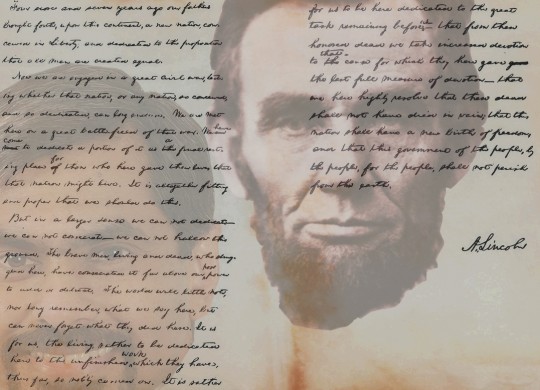 Four score and seven years ago our fathers
brought forth, upon this continent, a new nation, con-
ceived in Liberty, and dedicated to the proposition
that all men are created equal.
Now we are engaged in a great civil war, test-
ing whether that nation, or any nation so conceived,
and so dedicated, can long endure. We are met
here on a great battlefield of that war. We have
come
to dedicate a portion of it as the final rest-
for
ing place of those who here gave their lives that
that nation might live. It is altogether fitting
and proper that we should do this.
But in a larger sense we can not dedicate—
we can not consecrate—we can not hallow this
ground. The brave men, living and dead, who strug-
gled here, have consecrated it far above our poor power
to add or detract. The world will little note,
nor long remember, what we say here, but
can never forget what they did here. It is
for us, the living, rather to be dedicated
work
here to the unfinished which they have,
thus far, so nobly carried on. It is rather
for us to be here dedicated to the great
task remaining before us—that from these
honored dead we take increased devotion
that
to the cause for which they here gave
the last full measure of devotion—that
we here highly resolve that these dead
shall not have died in vain; that this
nation shall have a new birth of freedom;
and that this government of the people, by
the people, for the people, shall not perish
from the earth.
A. Lincoln